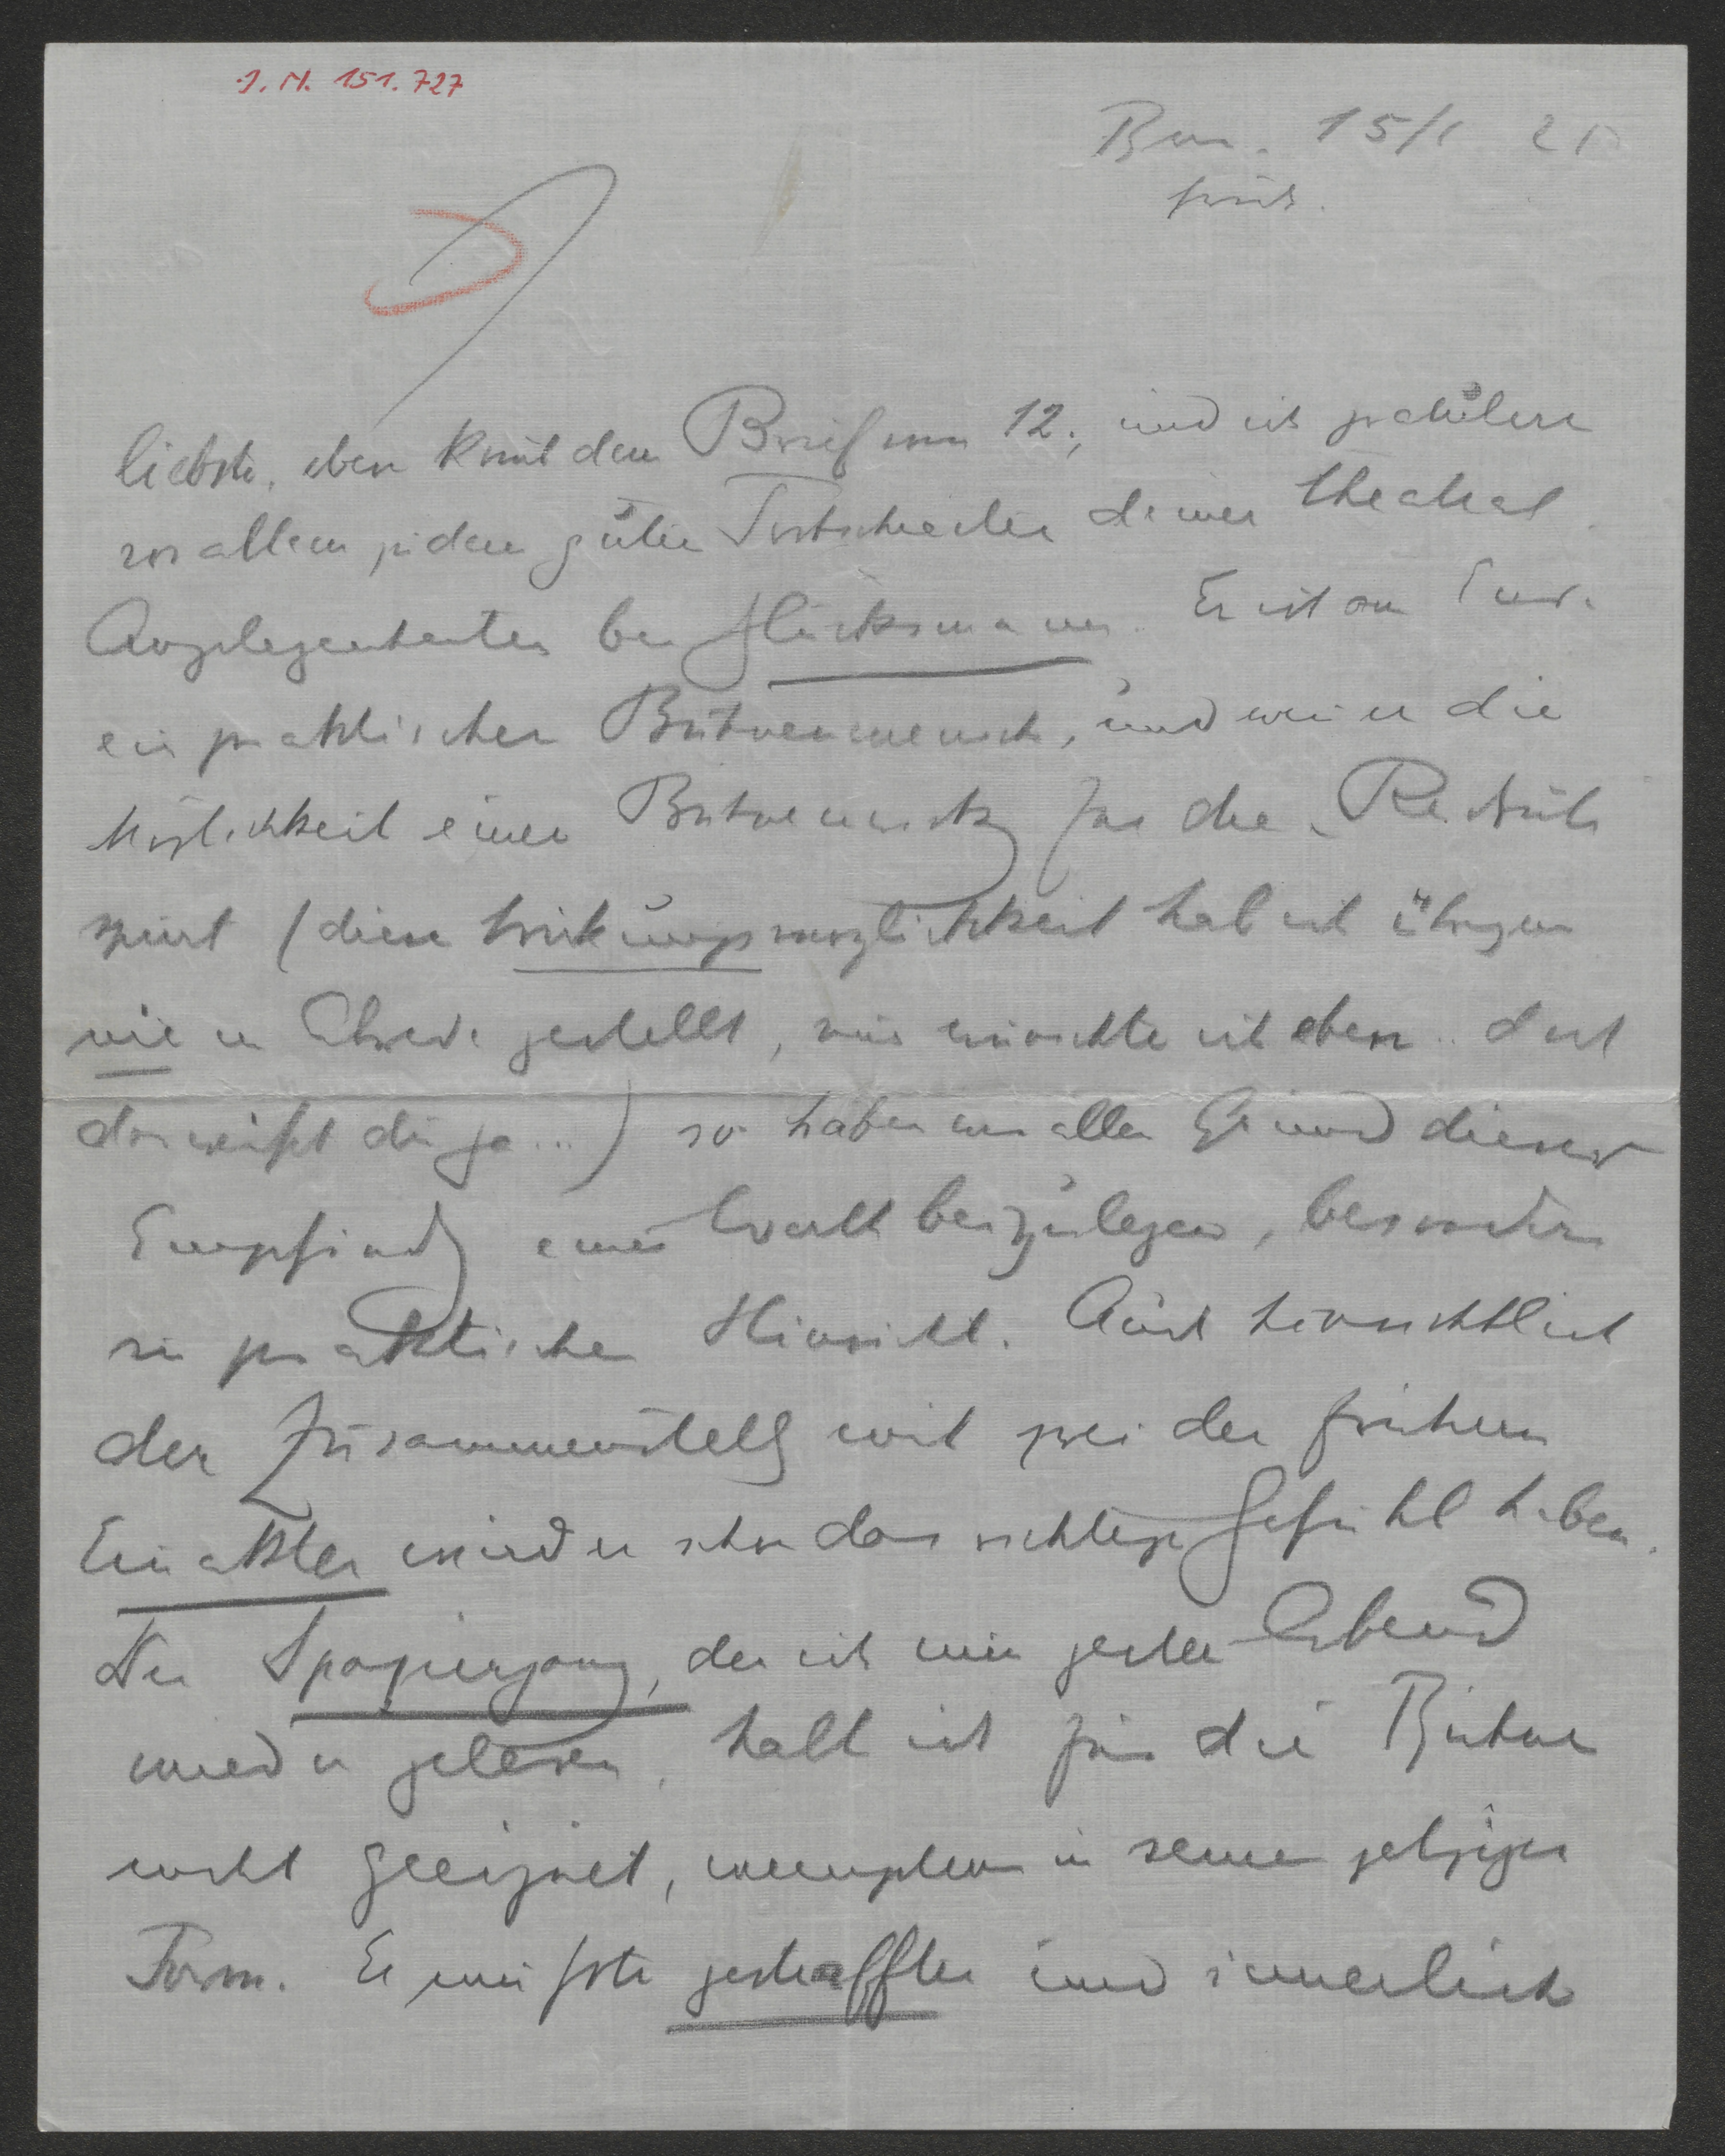 J. N. 151.727
15/1 21
früh.
liebste, eben kommt dein Brief vom 12., und ich gratulire
vor allem zu dem guten Fortschreiten deiner Theatral
Angelegenheiten bei Glücksmann. Er ist am Ende
ein praktischer Bühnenmensch, und wenn er die
Möglichkeit einer Bühnenwirkg für die
spürt (diese Wirkungsmöglichkeit hab ich übrigens
nie in Abrede gestellt, nur wünschte ich eben .. doch
das weißt du ja ...) so haben wir allen Grund dieser
Empfindg einen Wert beizulegen, besonders
in praktischer Hinsicht. Auch hinsichtlich
der Zusammenstellg mit zwei der frühern
Einakter wird er schon das richtige Gefühl haben.
Den Spaziergang, den ich mir gestern Abend
wieder gelesen, halt ich für die Bühne
nicht geeignet, wenigstens in seiner jetzigen
Form. Er müßte gestraffter und innerlich